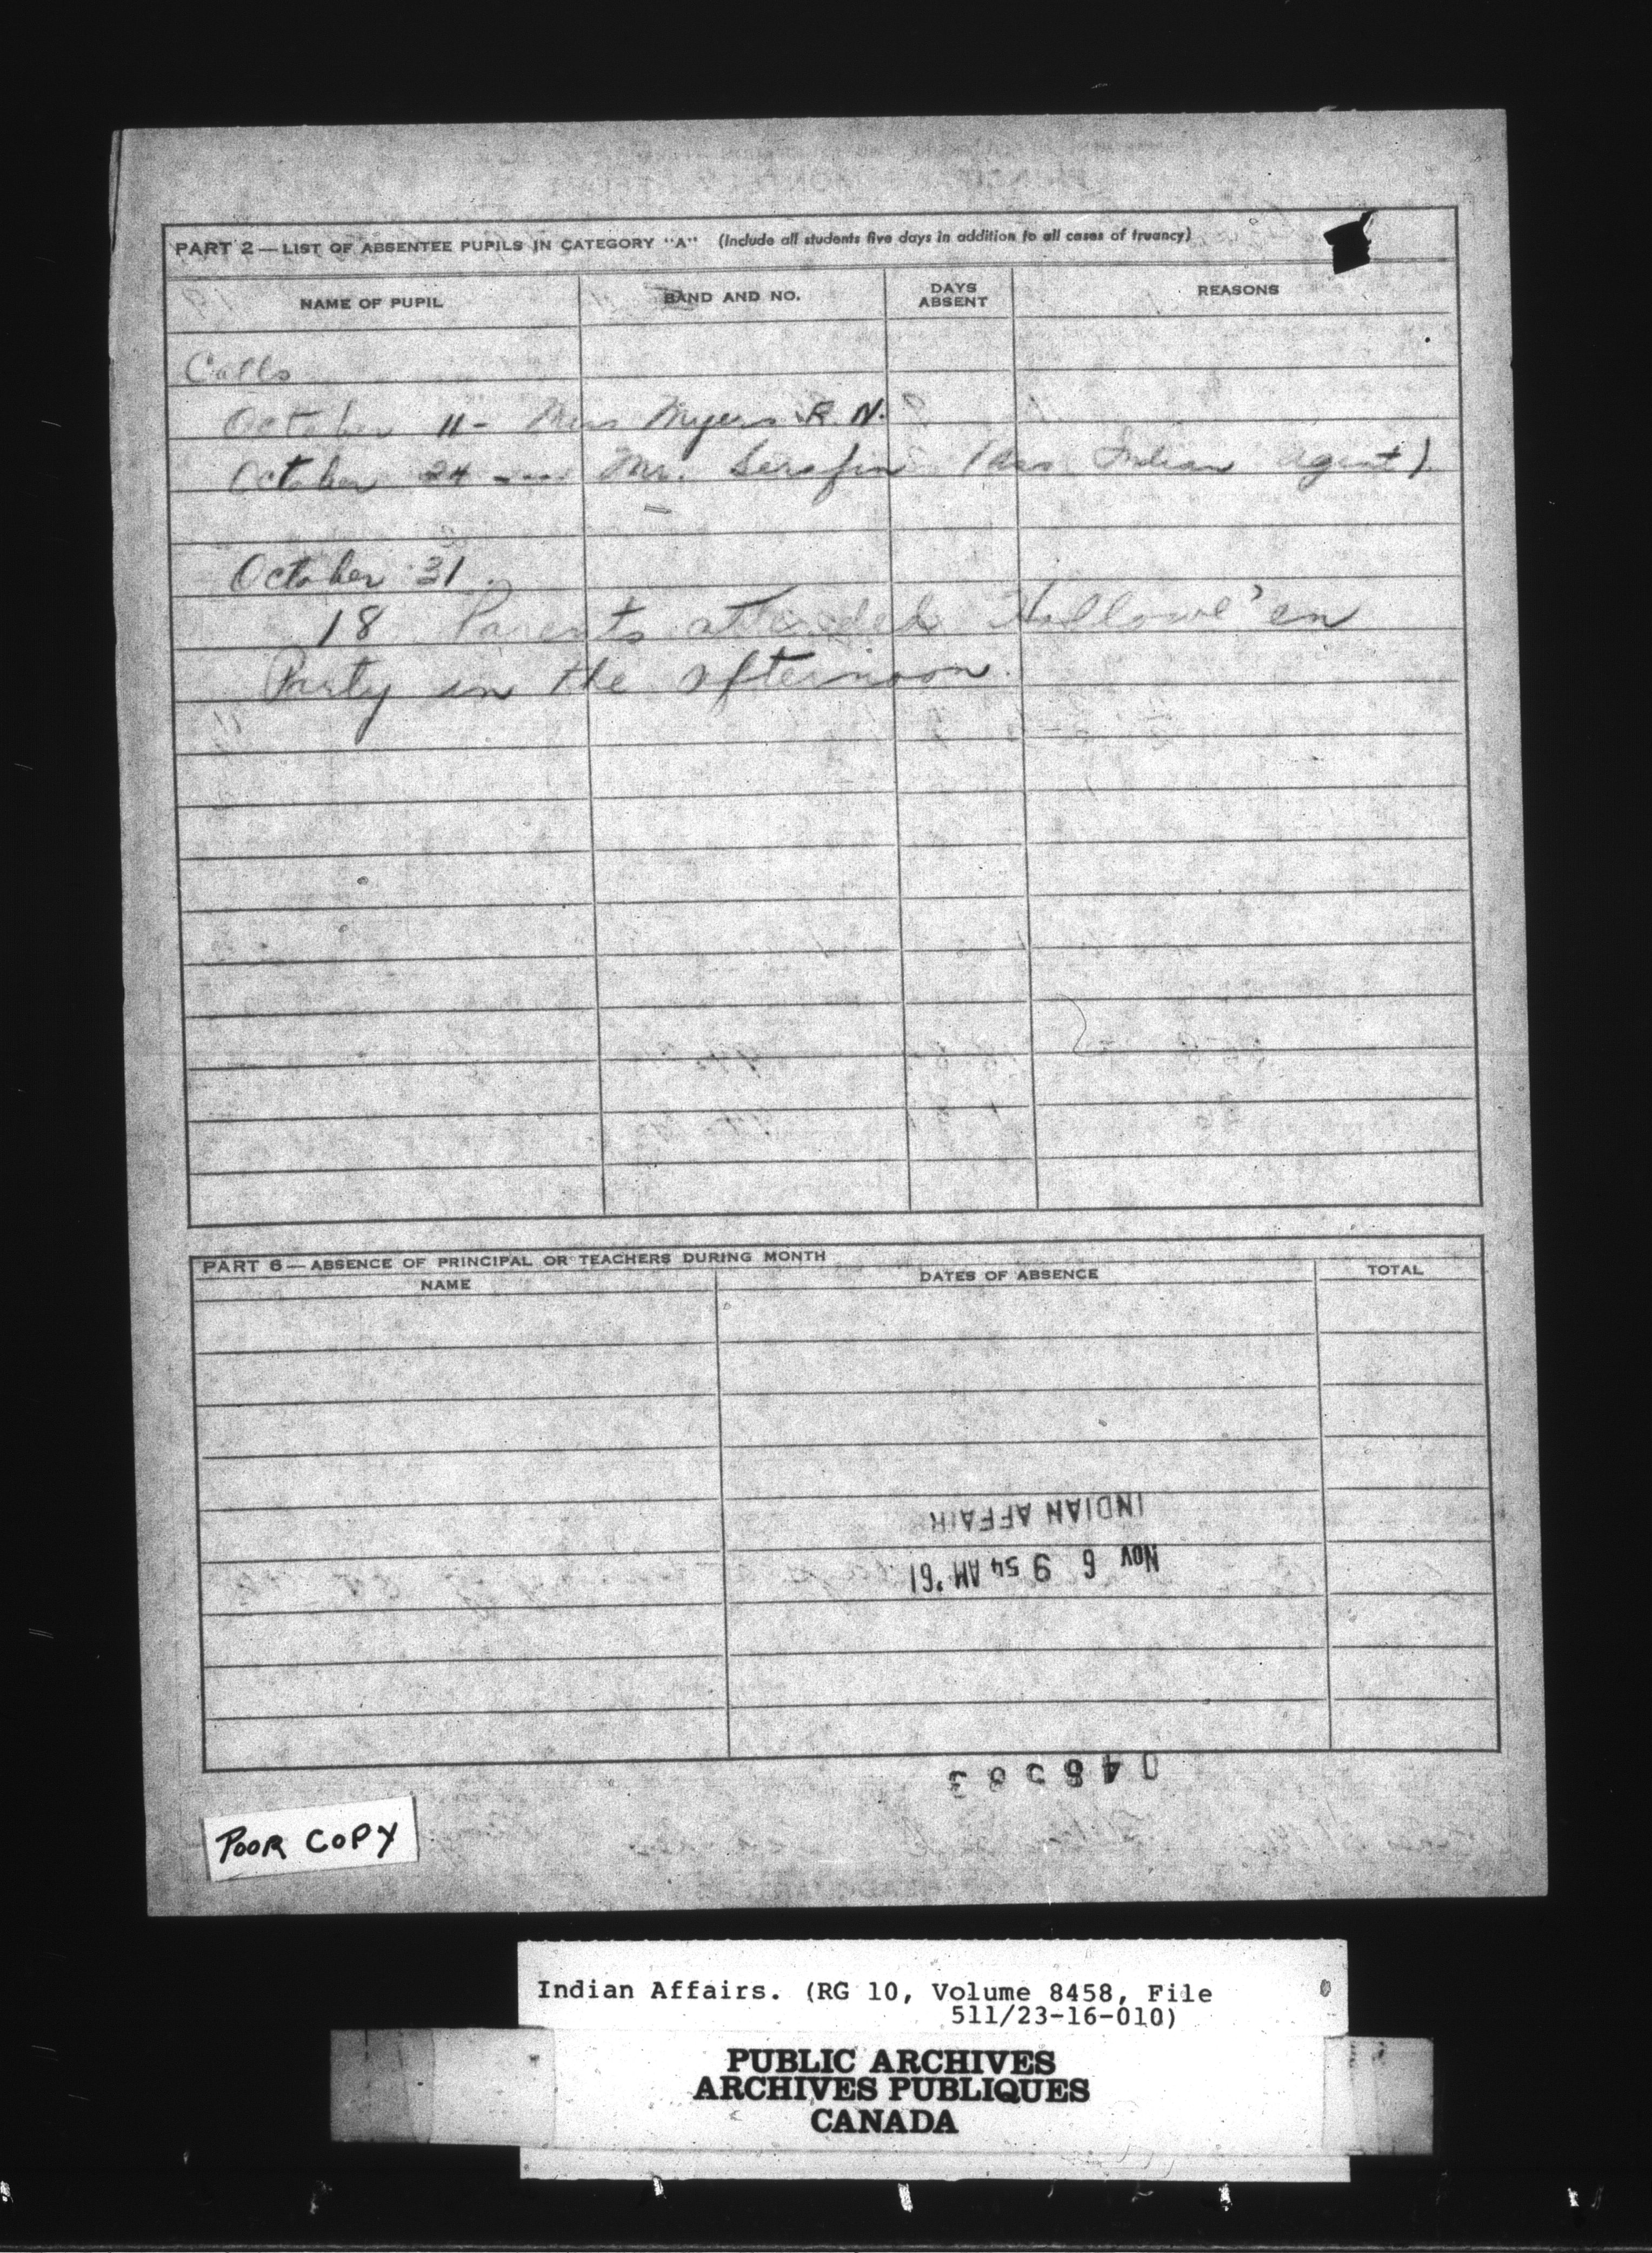 PART 2 — LIST OF ABSENTEE PUPILS IN CATEGORY "A" (Include all students five days in addition to all cases of truancy)
NAME OF PUPIL BAND AND NO. DAYS ABSENT REASONS
Calls
October 11 - Miss Myers R.N.
October 24 --- Mr. Serafin (Ass Indian Agent)
October 31.
18 Parents attended Hallowe'en
Party in the afternoon.
PART 6 — ABSENCE OF PRINCIPAL OR TEACHERS DURING MONTH
NAME DATES OF ABSENCE TOTAL
INDIAN AFFAIR
NOV 6 9 54 AM '61
POOR COPY
Indian Affairs. (RG 10, Volume 8458, File
511/23-16-010)
PUBLIC ARCHIVES
ARCHIVES PUBLIQUES
CANADA